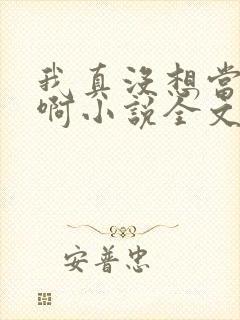 我真没想当
啊小说全文
安普忠